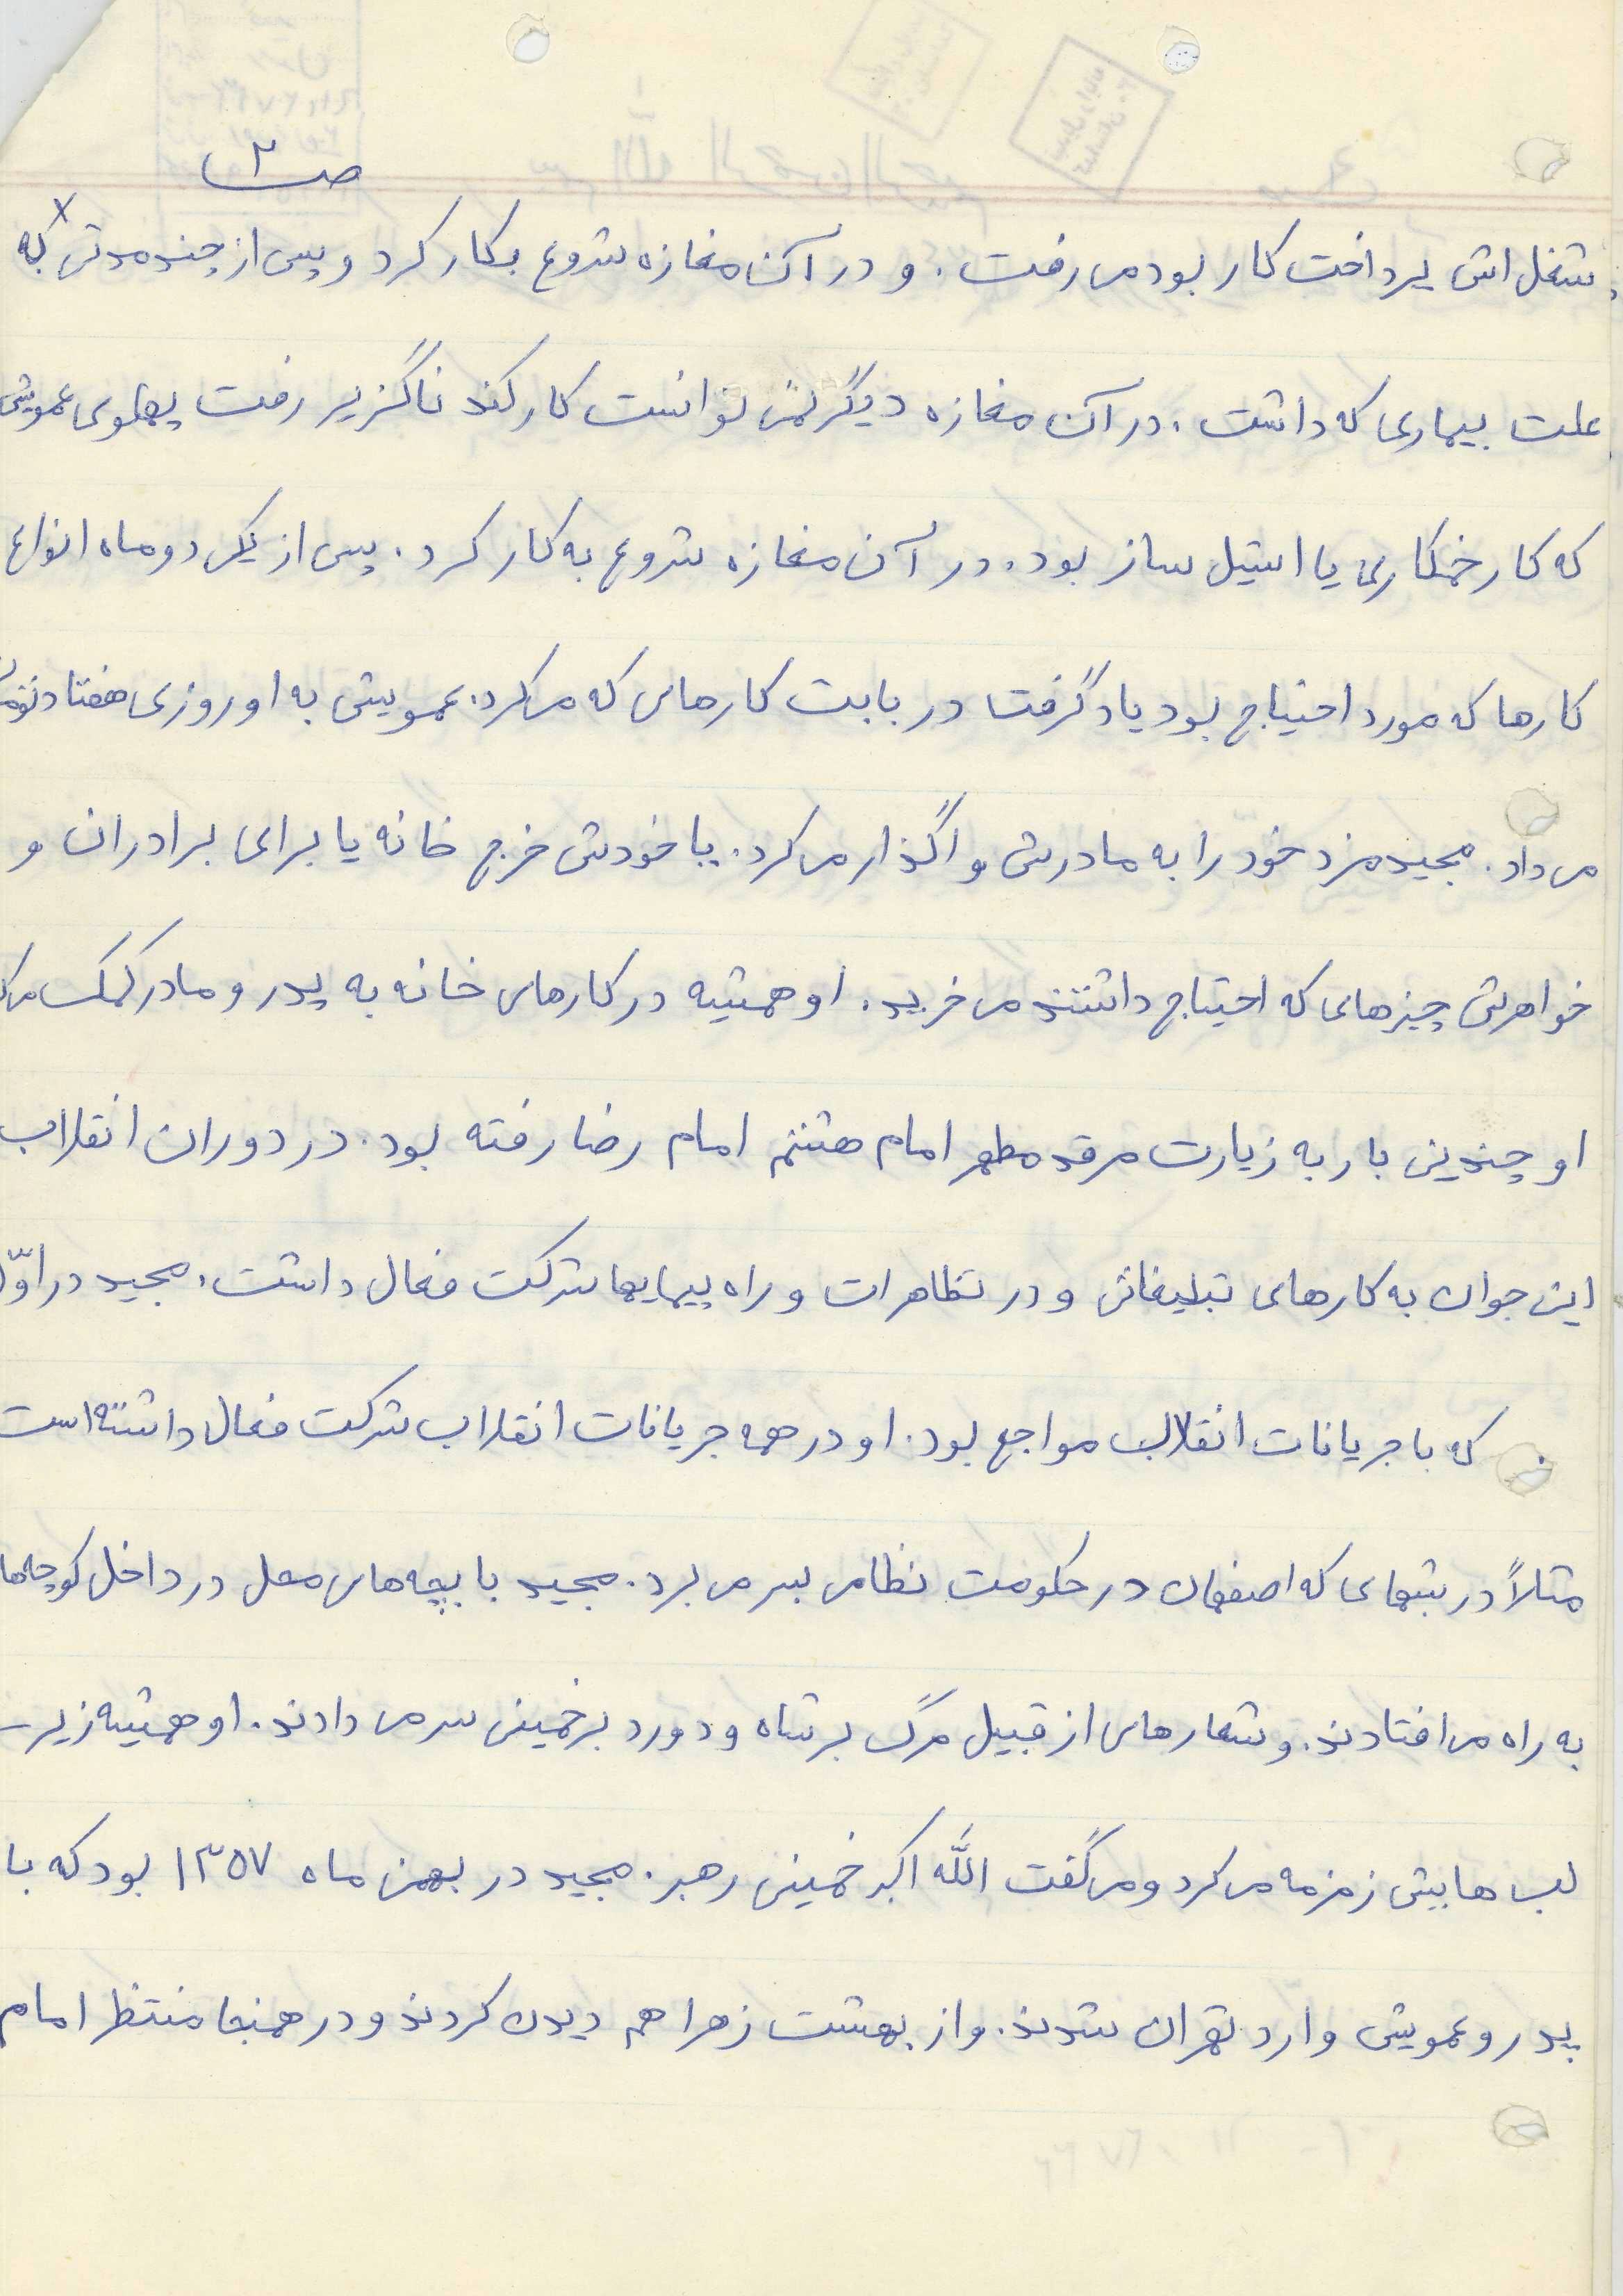 ص ۲
شغل اش پرداخت کار بود می رفت . و در آن مغازه شروع بکار کرد و پس از چند مدتی که
علت بیماری که داشت . در آن مغازه دیگر نمی توانست کار کند ناگزیر رفت پهلوی عمویش
که کار خمکاری یا استیل ساز بود . در آن مغازه شروع به کار کرد . پس از یکی دو ماه انواع
کارها که مورد احتیاج بود یاد گرفت در بابت کارهای که می کرد . عمویش به او روزی هفتاد تومان
می داد . مجید مزد خود را به مادرش واگذار می کرد . یا خودش خرج خانه یا برای برادران و
خواهرش چیزهای که احتیاج داشتند می خرید . او همیشه در کارهای خانه به پدر و مادر کمک می
او چندین بار به زیارت مرقد مطهر امام هشتم امام رضا رفته بود . در دوران انقلاب
این جوان به کارهای تبلیغاتی و در تظاهرات و راه پیمایها شرکت فعال داشت . مجید در اوّل
که با جریانات انقلاب مواجع بود . او در همه جریانات انقلاب شرکت فعال داشته است
مثلاً در شبهای که اصفهان در حکومت نظامی بسر می برد . مجید با بچه های محل در داخل کوچه ها
به راه می افتادند . و شعارهای از قبیل مرگ بر شاه و دورد بر خمینی سر می دادند . او همیشه زیر
لب هایش زمزمه می کرد و می گفت الله اکبر خمینی رهبر . مجید در بهمن ماه ۱۳۵۷ بود که با
پدر و عمویش وارد تهران شدند . و از بهشت زهرا هم دیدن کردند و در همنجا منتظر امام